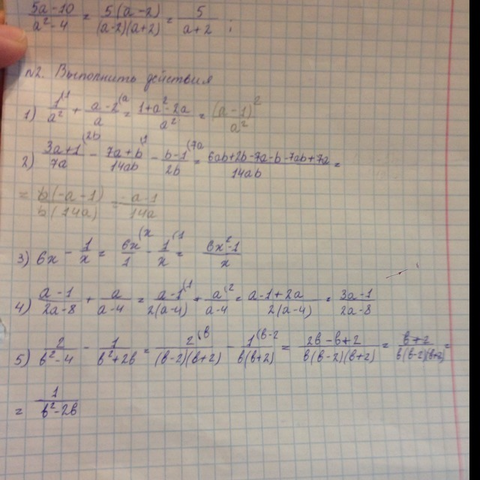 (5a-10)/(a²-4) = 5(a-2)/((a-2)(a+2)) = 5/(a+2) ;
№2. Выполнить действия
1) 1⁽¹/a² + a-2⁽ᵃ/a = (1+a²-2a)/a² = (a-1)²/a²
2) 3a+1⁽²ᵇ/7a - 7a+b⁽¹/14ab - b-1⁽⁷ᵃ/2b = (6ab+2b-7a-b-7ab+7a)/14ab =
= b(-a-1)/b(14a) = (-a-1)/14a
3) 6x - 1/x = 6x⁽ˣ/1 - 1⁽¹/x = (6x²-1)/x
4) (a-1)/(2a-8) + a/(a-4) = a-1⁽¹/2(a-4) + a⁽²/(a-4) = (a-1+2a)/2(a-4) = (3a-1)/(2a-8)
5) 2/(b²-4) - 1/(b²+2b) = 2⁽ᵇ/((b-2)(b+2)) - 1⁽ᵇ⁻²/b(b+2) = (2b-b+2)/(b(b-2)(b+2)) = (b+2)/(b(b-2)(b+2)) =
= 1/(b²-2b)